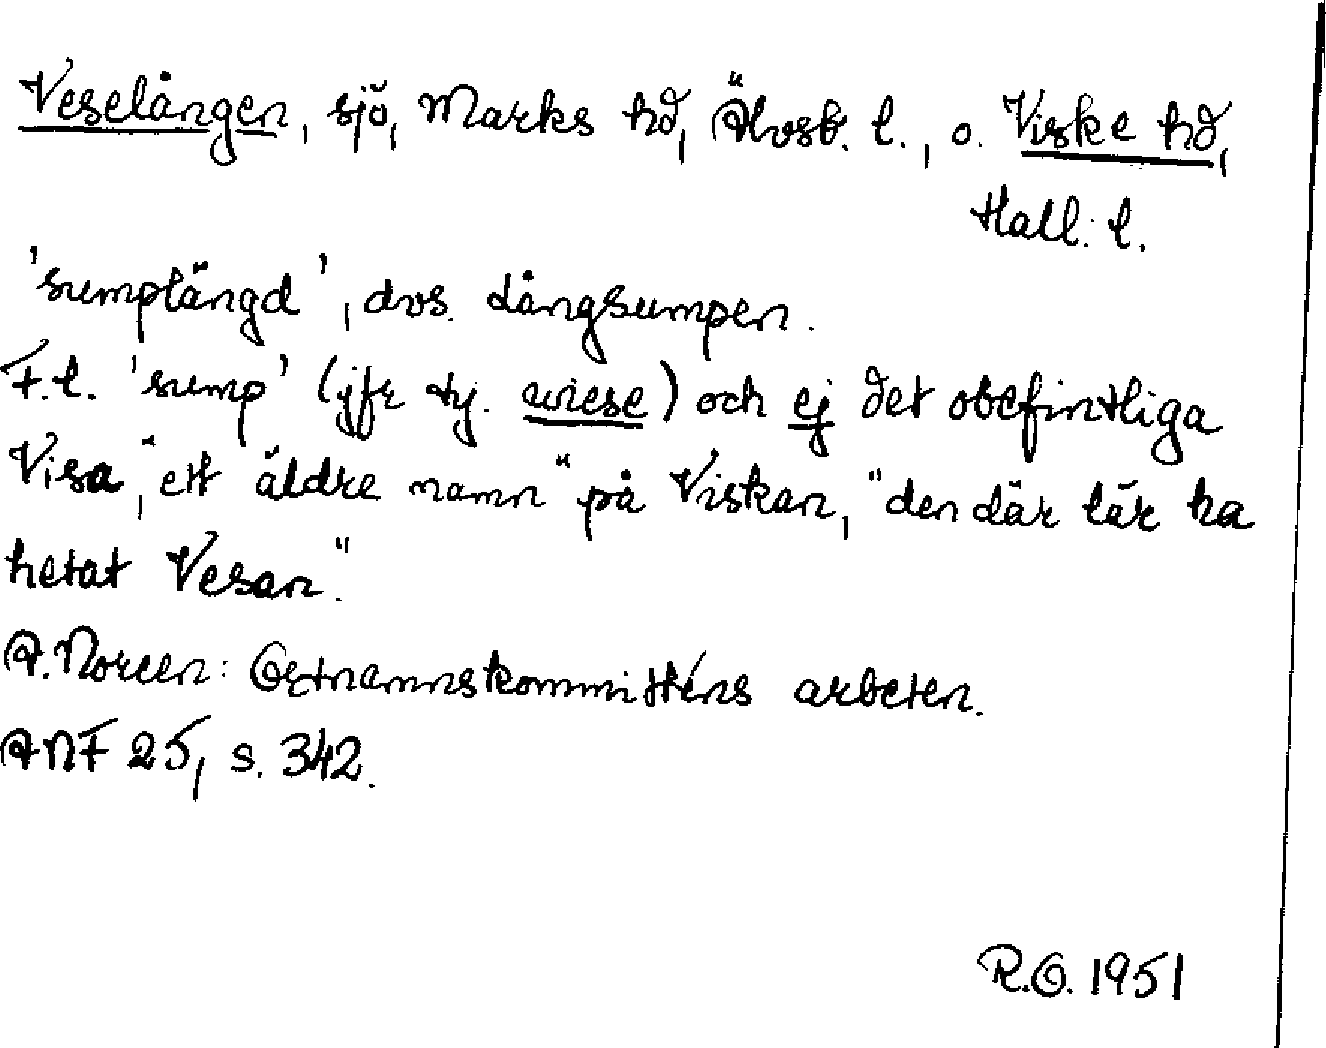 Veselången, sjö, Marks hd, Älvsb. l., o. Viske hd,
Hall. l.
'sumplängd', dvs. Långsumpen.
F.l. 'sump' (jfr ty. wiese) och ej det obefintliga
Visa, "ett äldre namn" på Viskan, "den där lär ha
hetat Vesan."
A. Noreen: Ortnamnskommitténs arbeten.
ANF 25, s. 342.
R.O. 1951